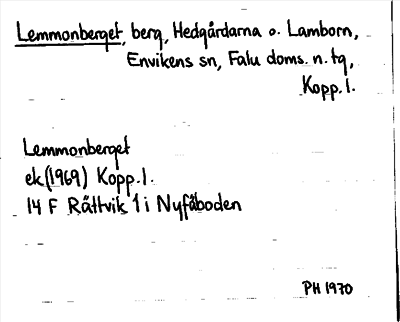 Lemmonberget, berg, Hedgårdarna o. Lamborn,
Envikens sn, Falu doms. n. tg,
Kopp. l.
Lemmonberget
ek (1969) Kopp. l.
14 F Rättvik 1 i Nyfäboden
PH 1970